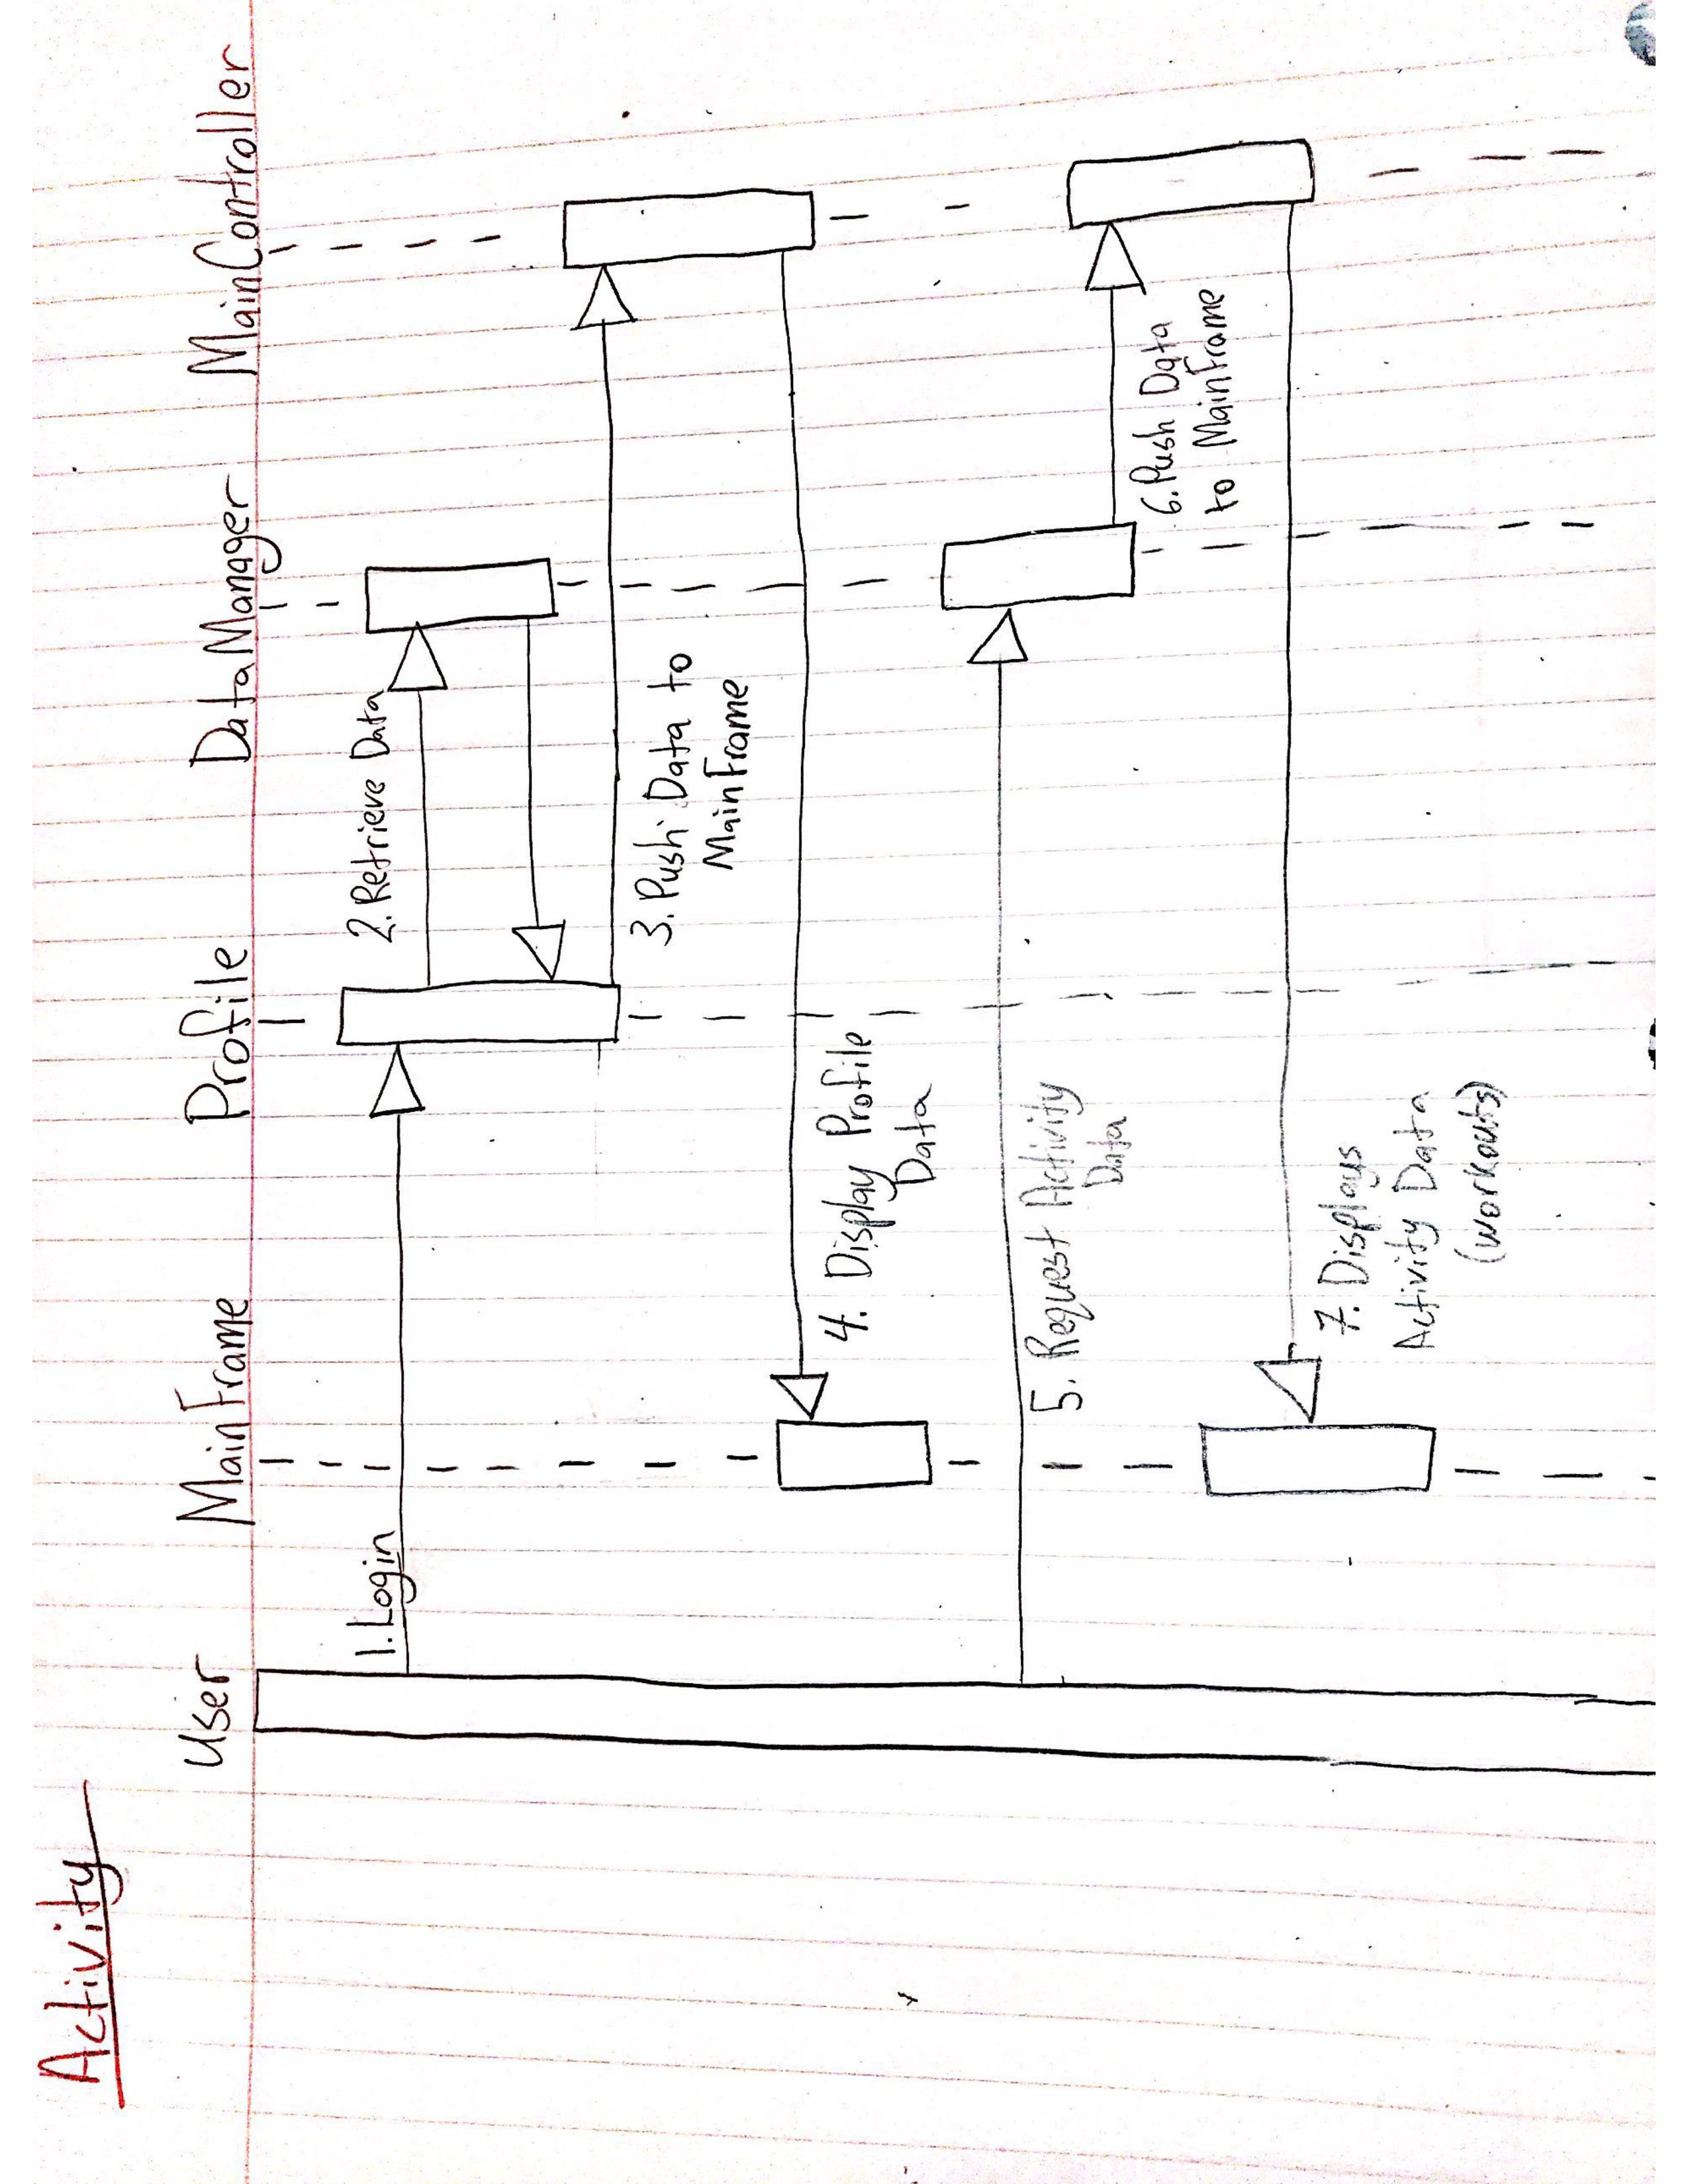 Activity
User
MainFrame
Profile
DataManager
MainController
1. Login
2. Retrieve Data
3. Push Data to
MainFrame
4. Display Profile
Data
5. Request Activity
Data
6. Push Data
to MainFrame
7. Displays
Activity Data
(workouts)